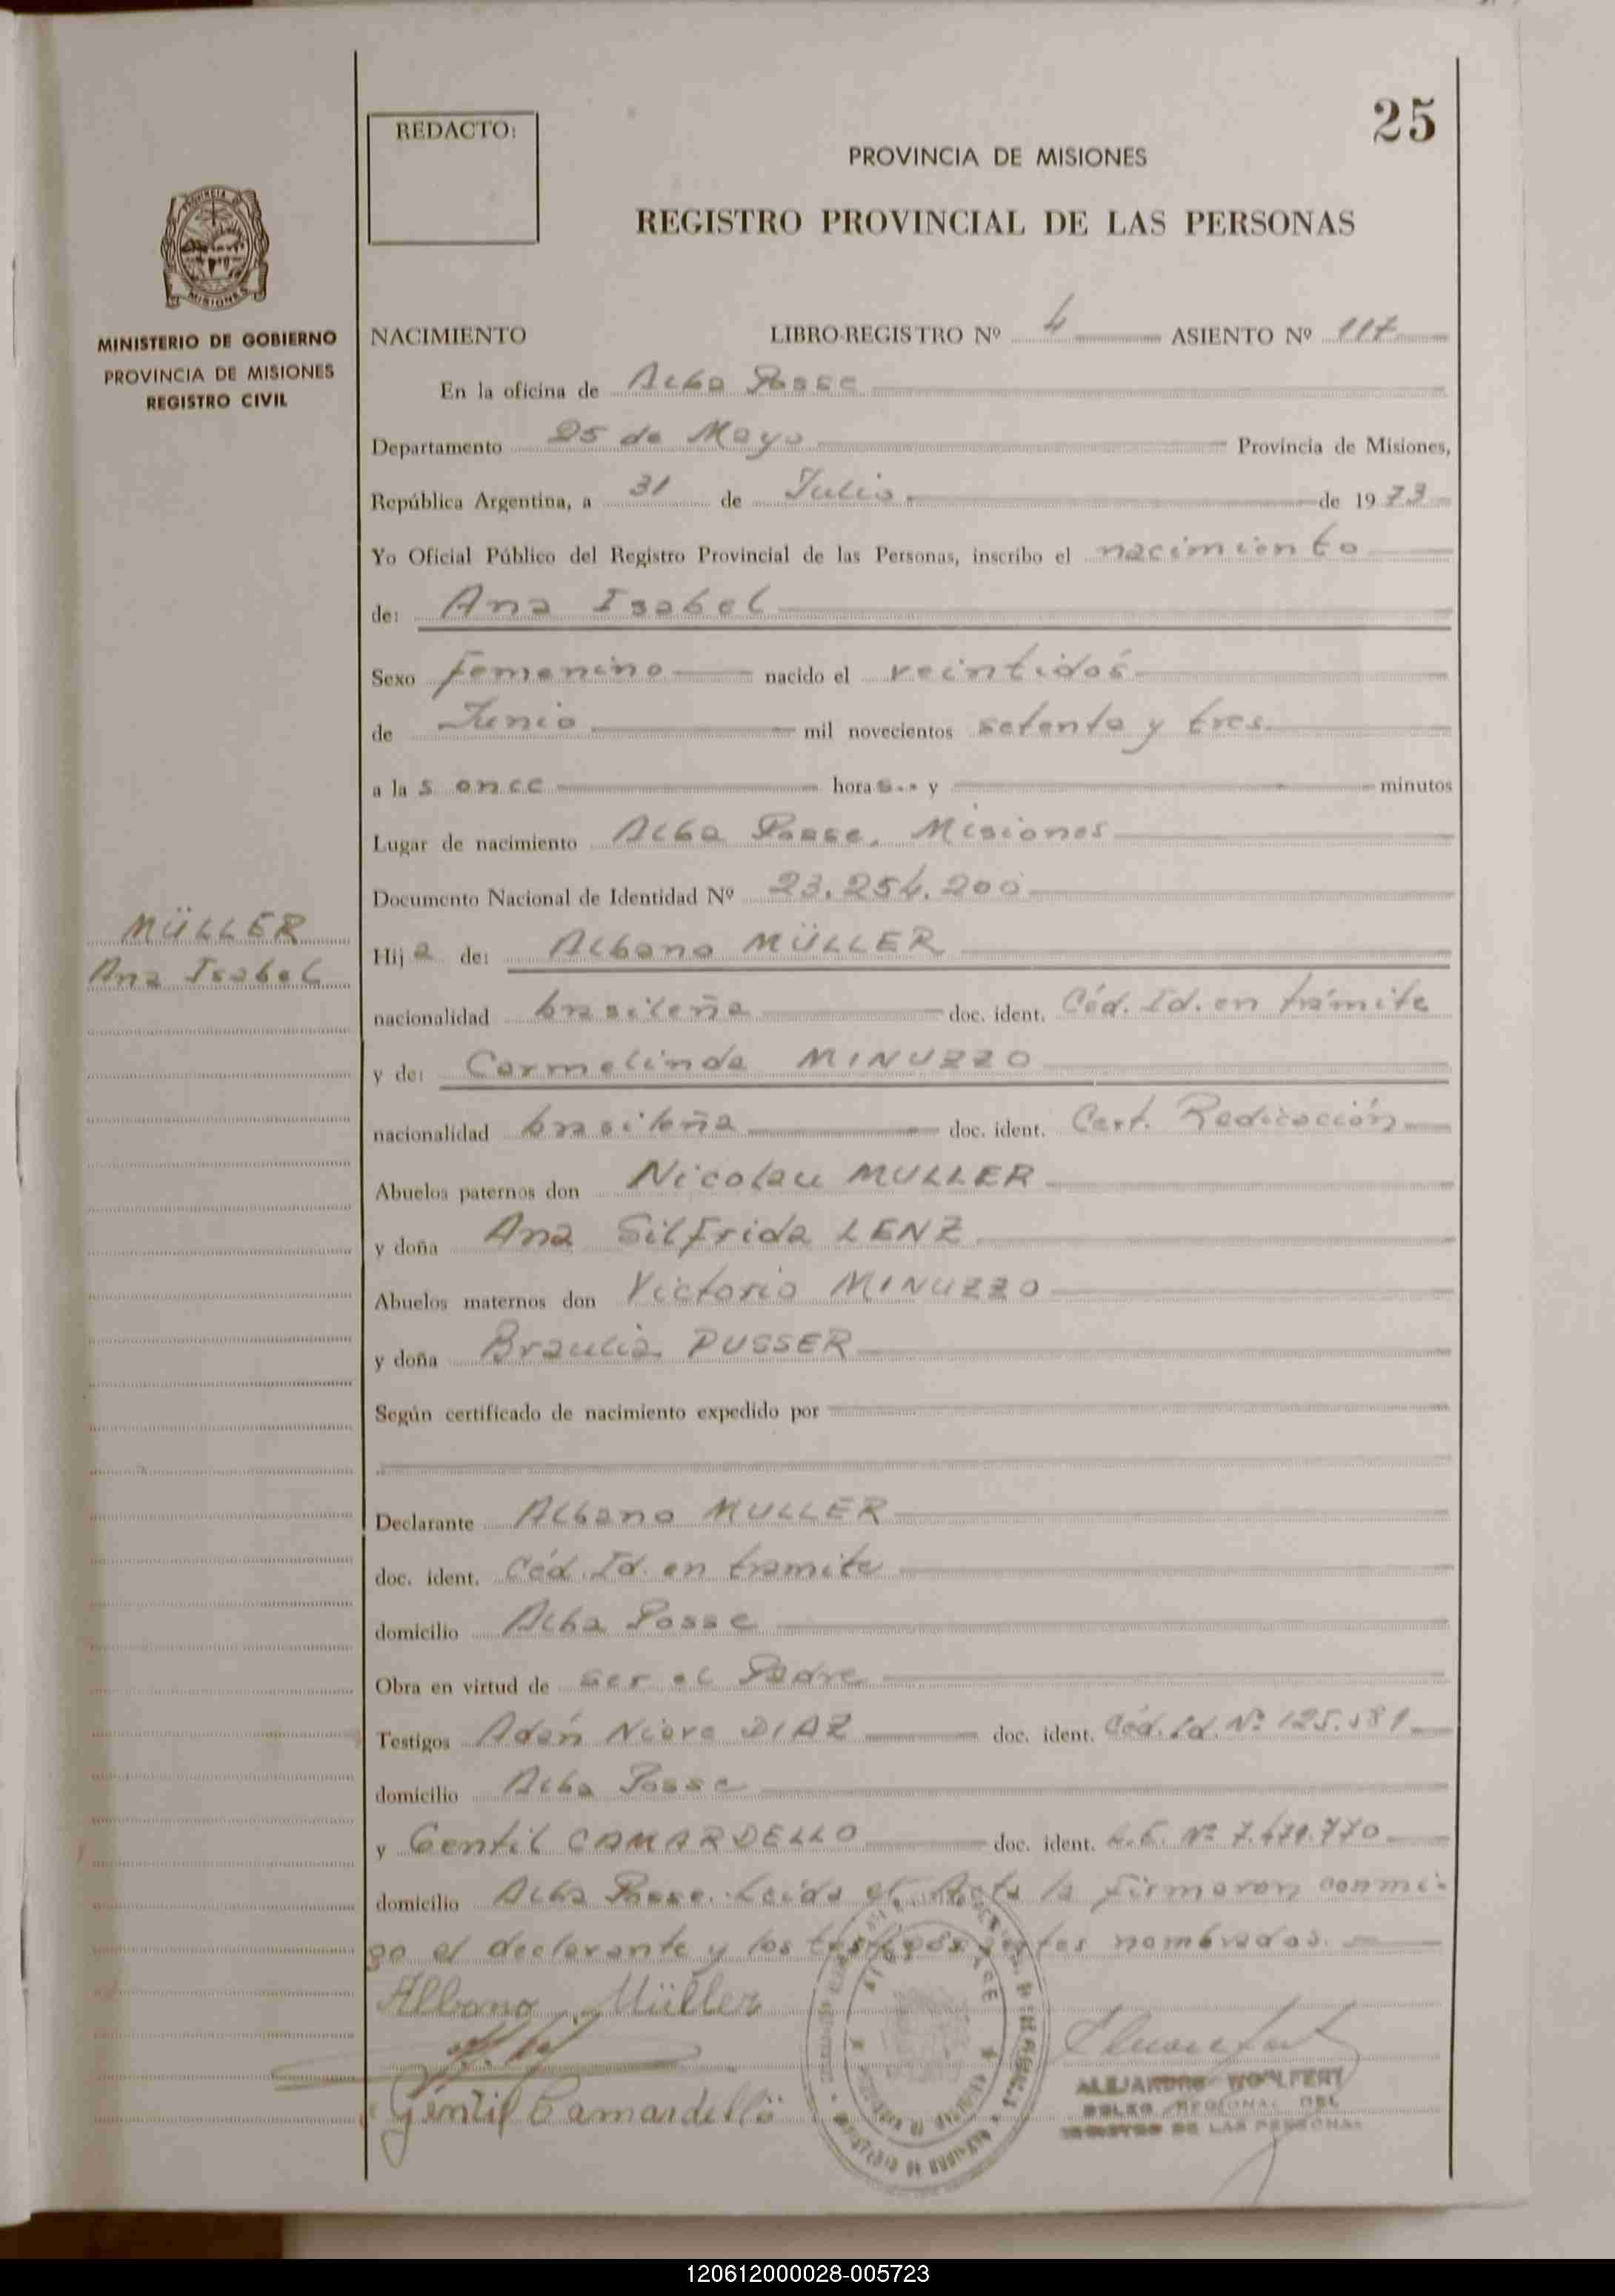 25
REDACTO:
PROVINCIA DE MISIONES
REGISTRO PROVINCIAL DE LAS PERSONAS
PROVINCIA DE
MISIONES
MINISTERIO DE GOBIERNO
PROVINCIA DE MISIONES
REGISTRO CIVIL
NACIMIENTO LIBRO-REGISTRO Nº 4 ASIENTO Nº 117
En la oficina de Alba Posse
Departamento 25 de Mayo Provincia de Misiones,
República Argentina, a 31 de Julio de 1973
Yo Oficial Público del Registro Provincial de las Personas, inscribo el nacimiento
de: Ana Isabel
Sexo femenino nacido el veintidós
de Junio mil novecientos setenta y tres
a las once horas y minutos
Lugar de nacimiento Alba Posse, Misiones
Documento Nacional de Identidad Nº 23.254.200
MÜLLER
Ana Isabel
Hija de: Albano MÜLLER
nacionalidad brasileña doc. ident. Céd. Id. en trámite
y de: Carmelinda MINUZZO
nacionalidad brasileña doc. ident. Cert. Radicación
Abuelos paternos don Nicolau MULLER
y doña Ana Silfrida LENZ
Abuelos maternos don Victorio MINUZZO
y doña Braulia PUSSER
Según certificado de nacimiento expedido por
Declarante Albano MULLER
doc. ident. Céd. Id. en tramite
domicilio Alba Posse
Obra en virtud de ser el Padre
Testigos Adán Nieve DIAZ doc. ident. Céd. Id. Nº 125.581
domicilio Alba Posse
y Gentil CAMARDELLO doc. ident. L.E. Nº 7.479.770
domicilio Alba Posse. Leída el Acta la firmaron conmi-
go el declarante y los testigos antes nombrados.
Albano Müller
Gentil Camardello
ALEJANDRO WOLFERT
REGIONAL DEL
REGISTRO DE LAS PERSONAS
120612000028-005723